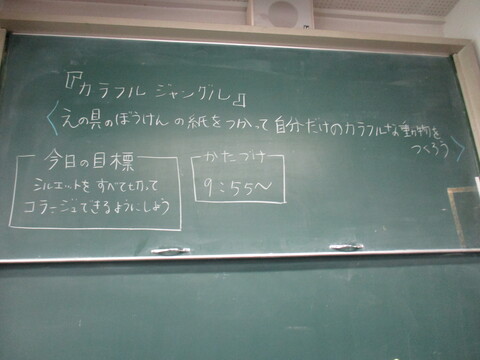 『カラフル ジャングル』
〈えの具のぼうけんの紙をつかって自分だけのカラフルな動物を
つくろう〉
今日の目標
シルエットをすべて切って
コラージュできるようにしよう
かたづけ
9:55〜